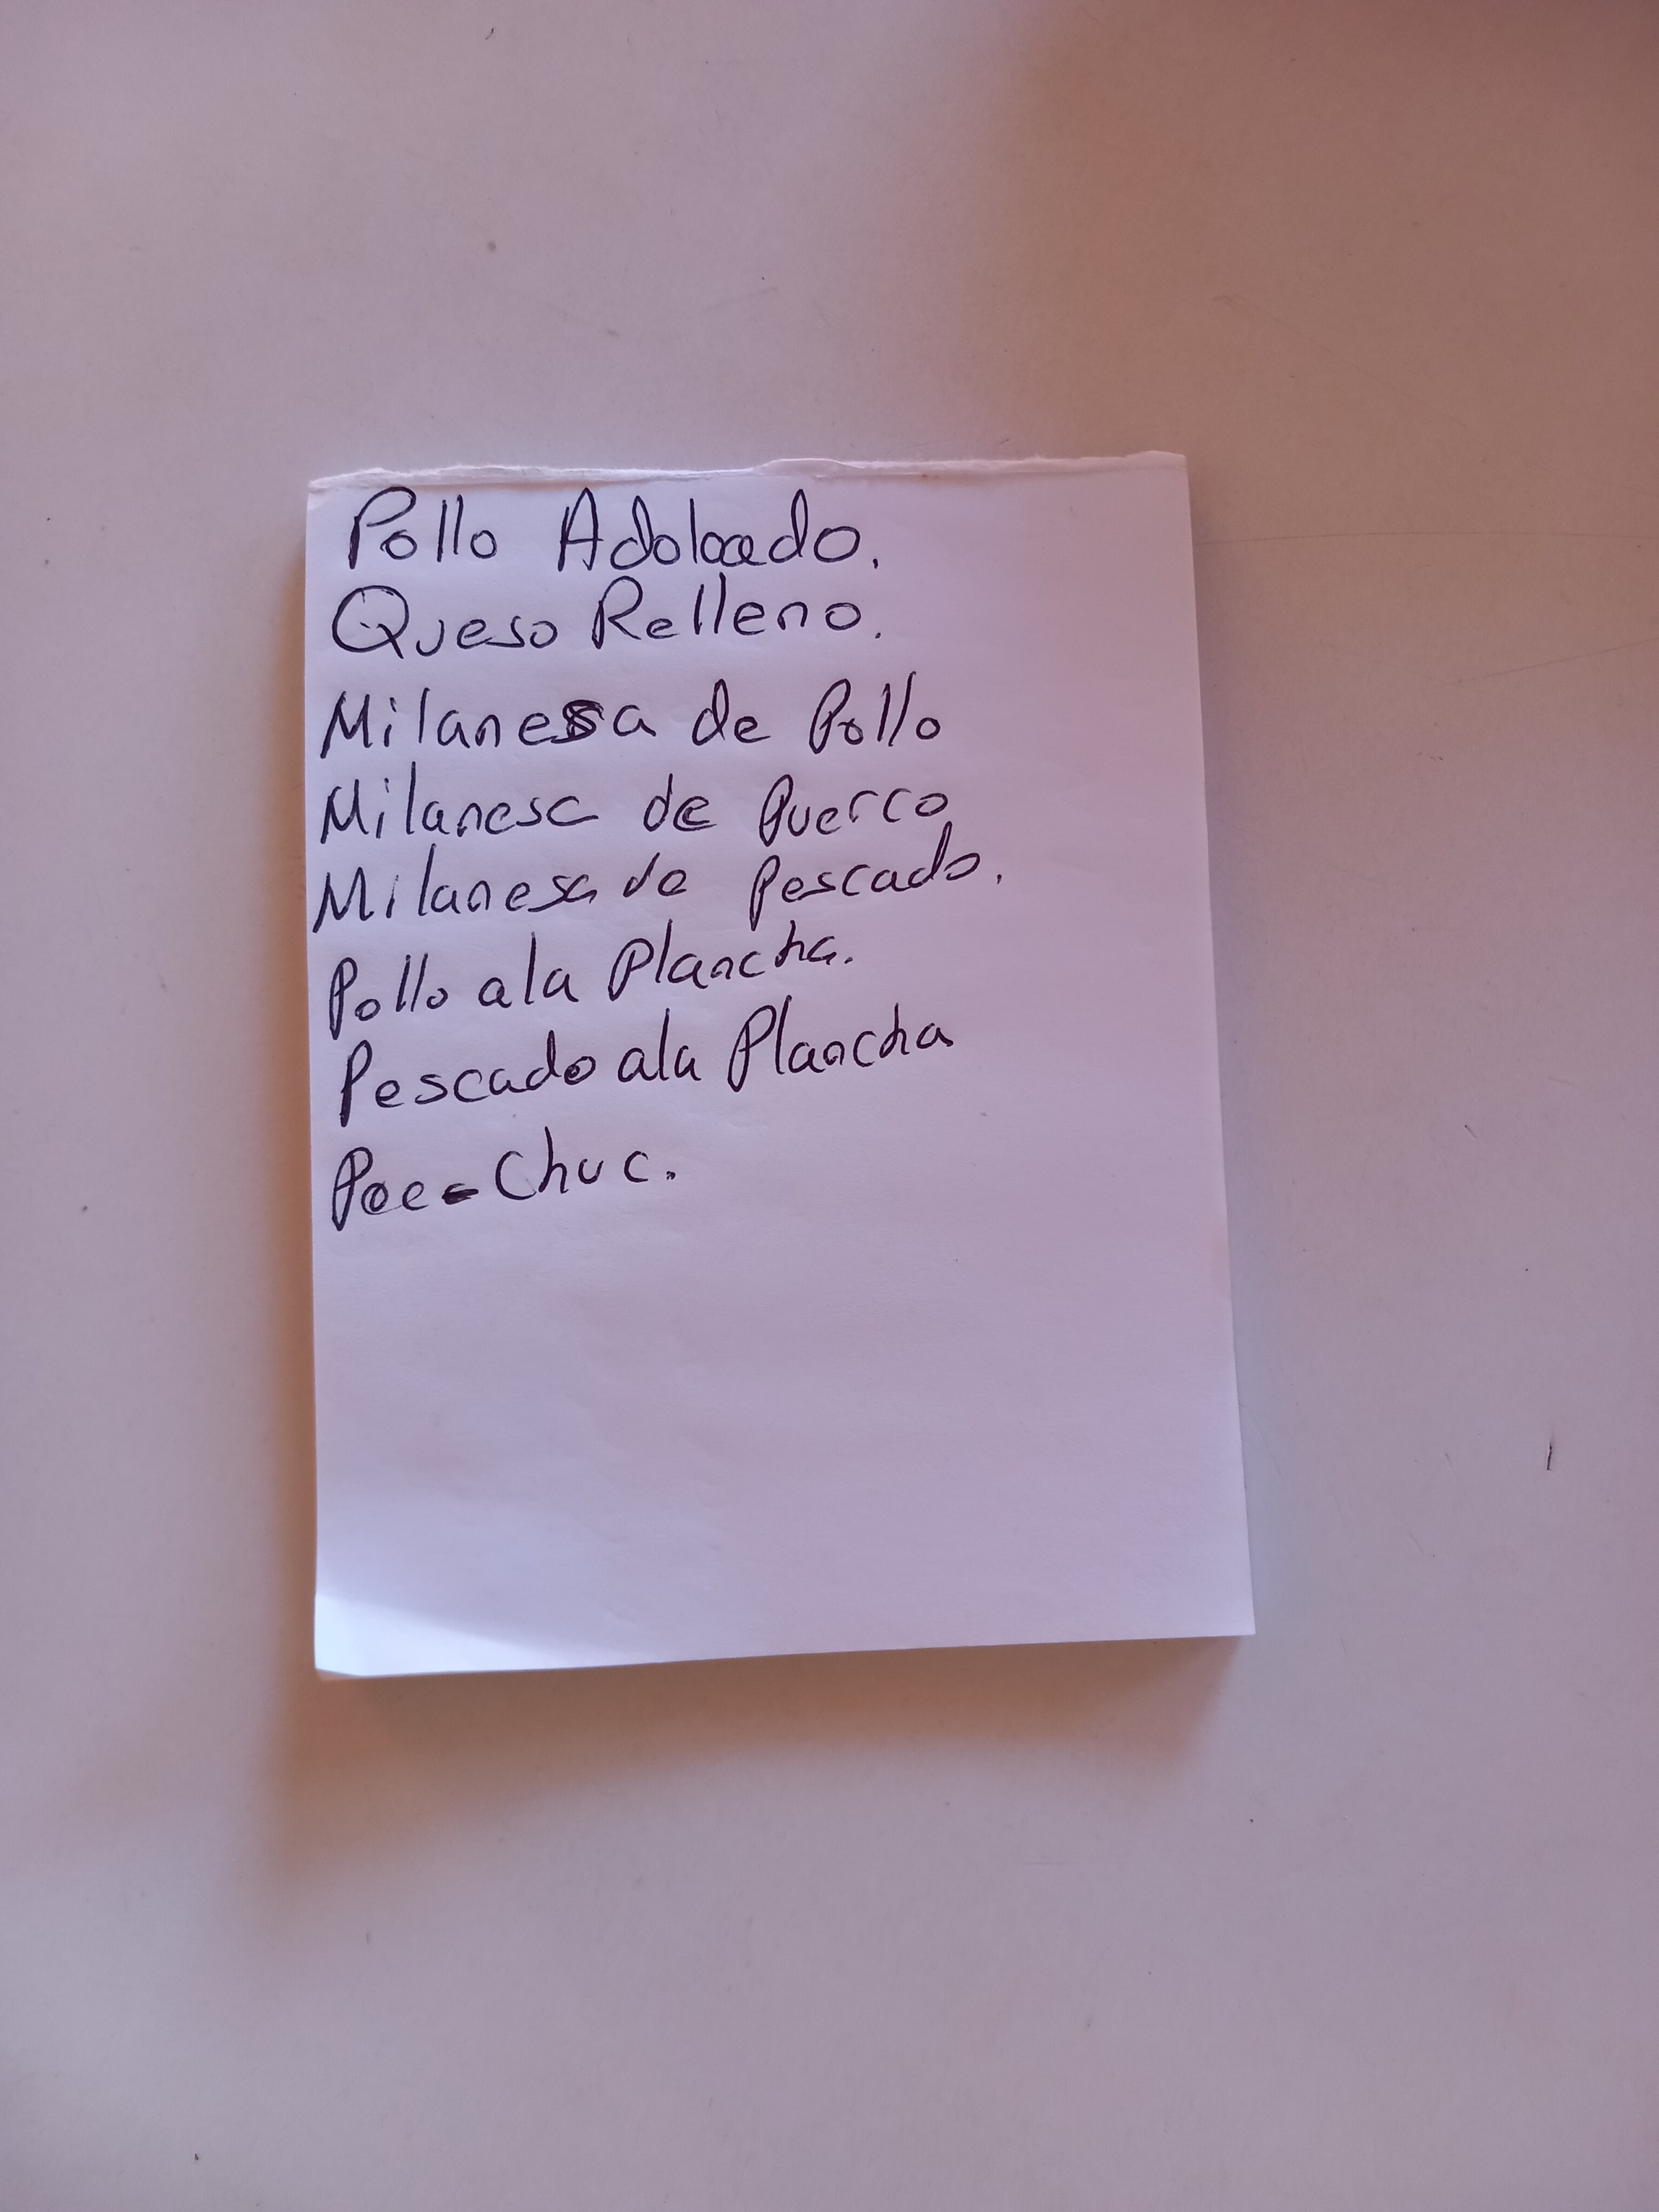 Pollo Adobado.
Queso Relleno.
Milanesa de Pollo
Milanesa de Puerco
Milanesa de Pescado.
Pollo a la Plancha.
Pescado a la Plancha
Poc-Chuc.